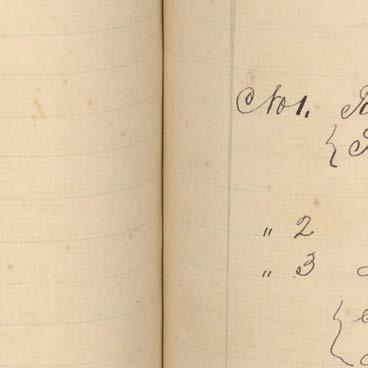 No 1.
{
" 2
" 3
{